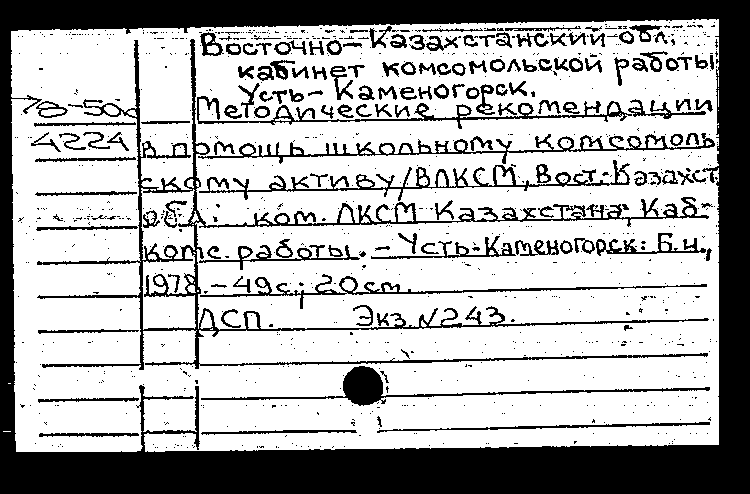 Восточно-Казахстанский обл.
кабинет комсомольской работы
Усть-Каменогорск.
78-50
Методические рекомендации
4224
в помощь школьному комсомоль
скому активу/ВЛКСМ, Вост.-Казахст
обл. ком. ЛКСМ Казахстана; Каб.
комс. работы. - Усть-Каменогорск: Б.и.,
1978. - 49с.; 20см.
ДСП. Экз. №243.